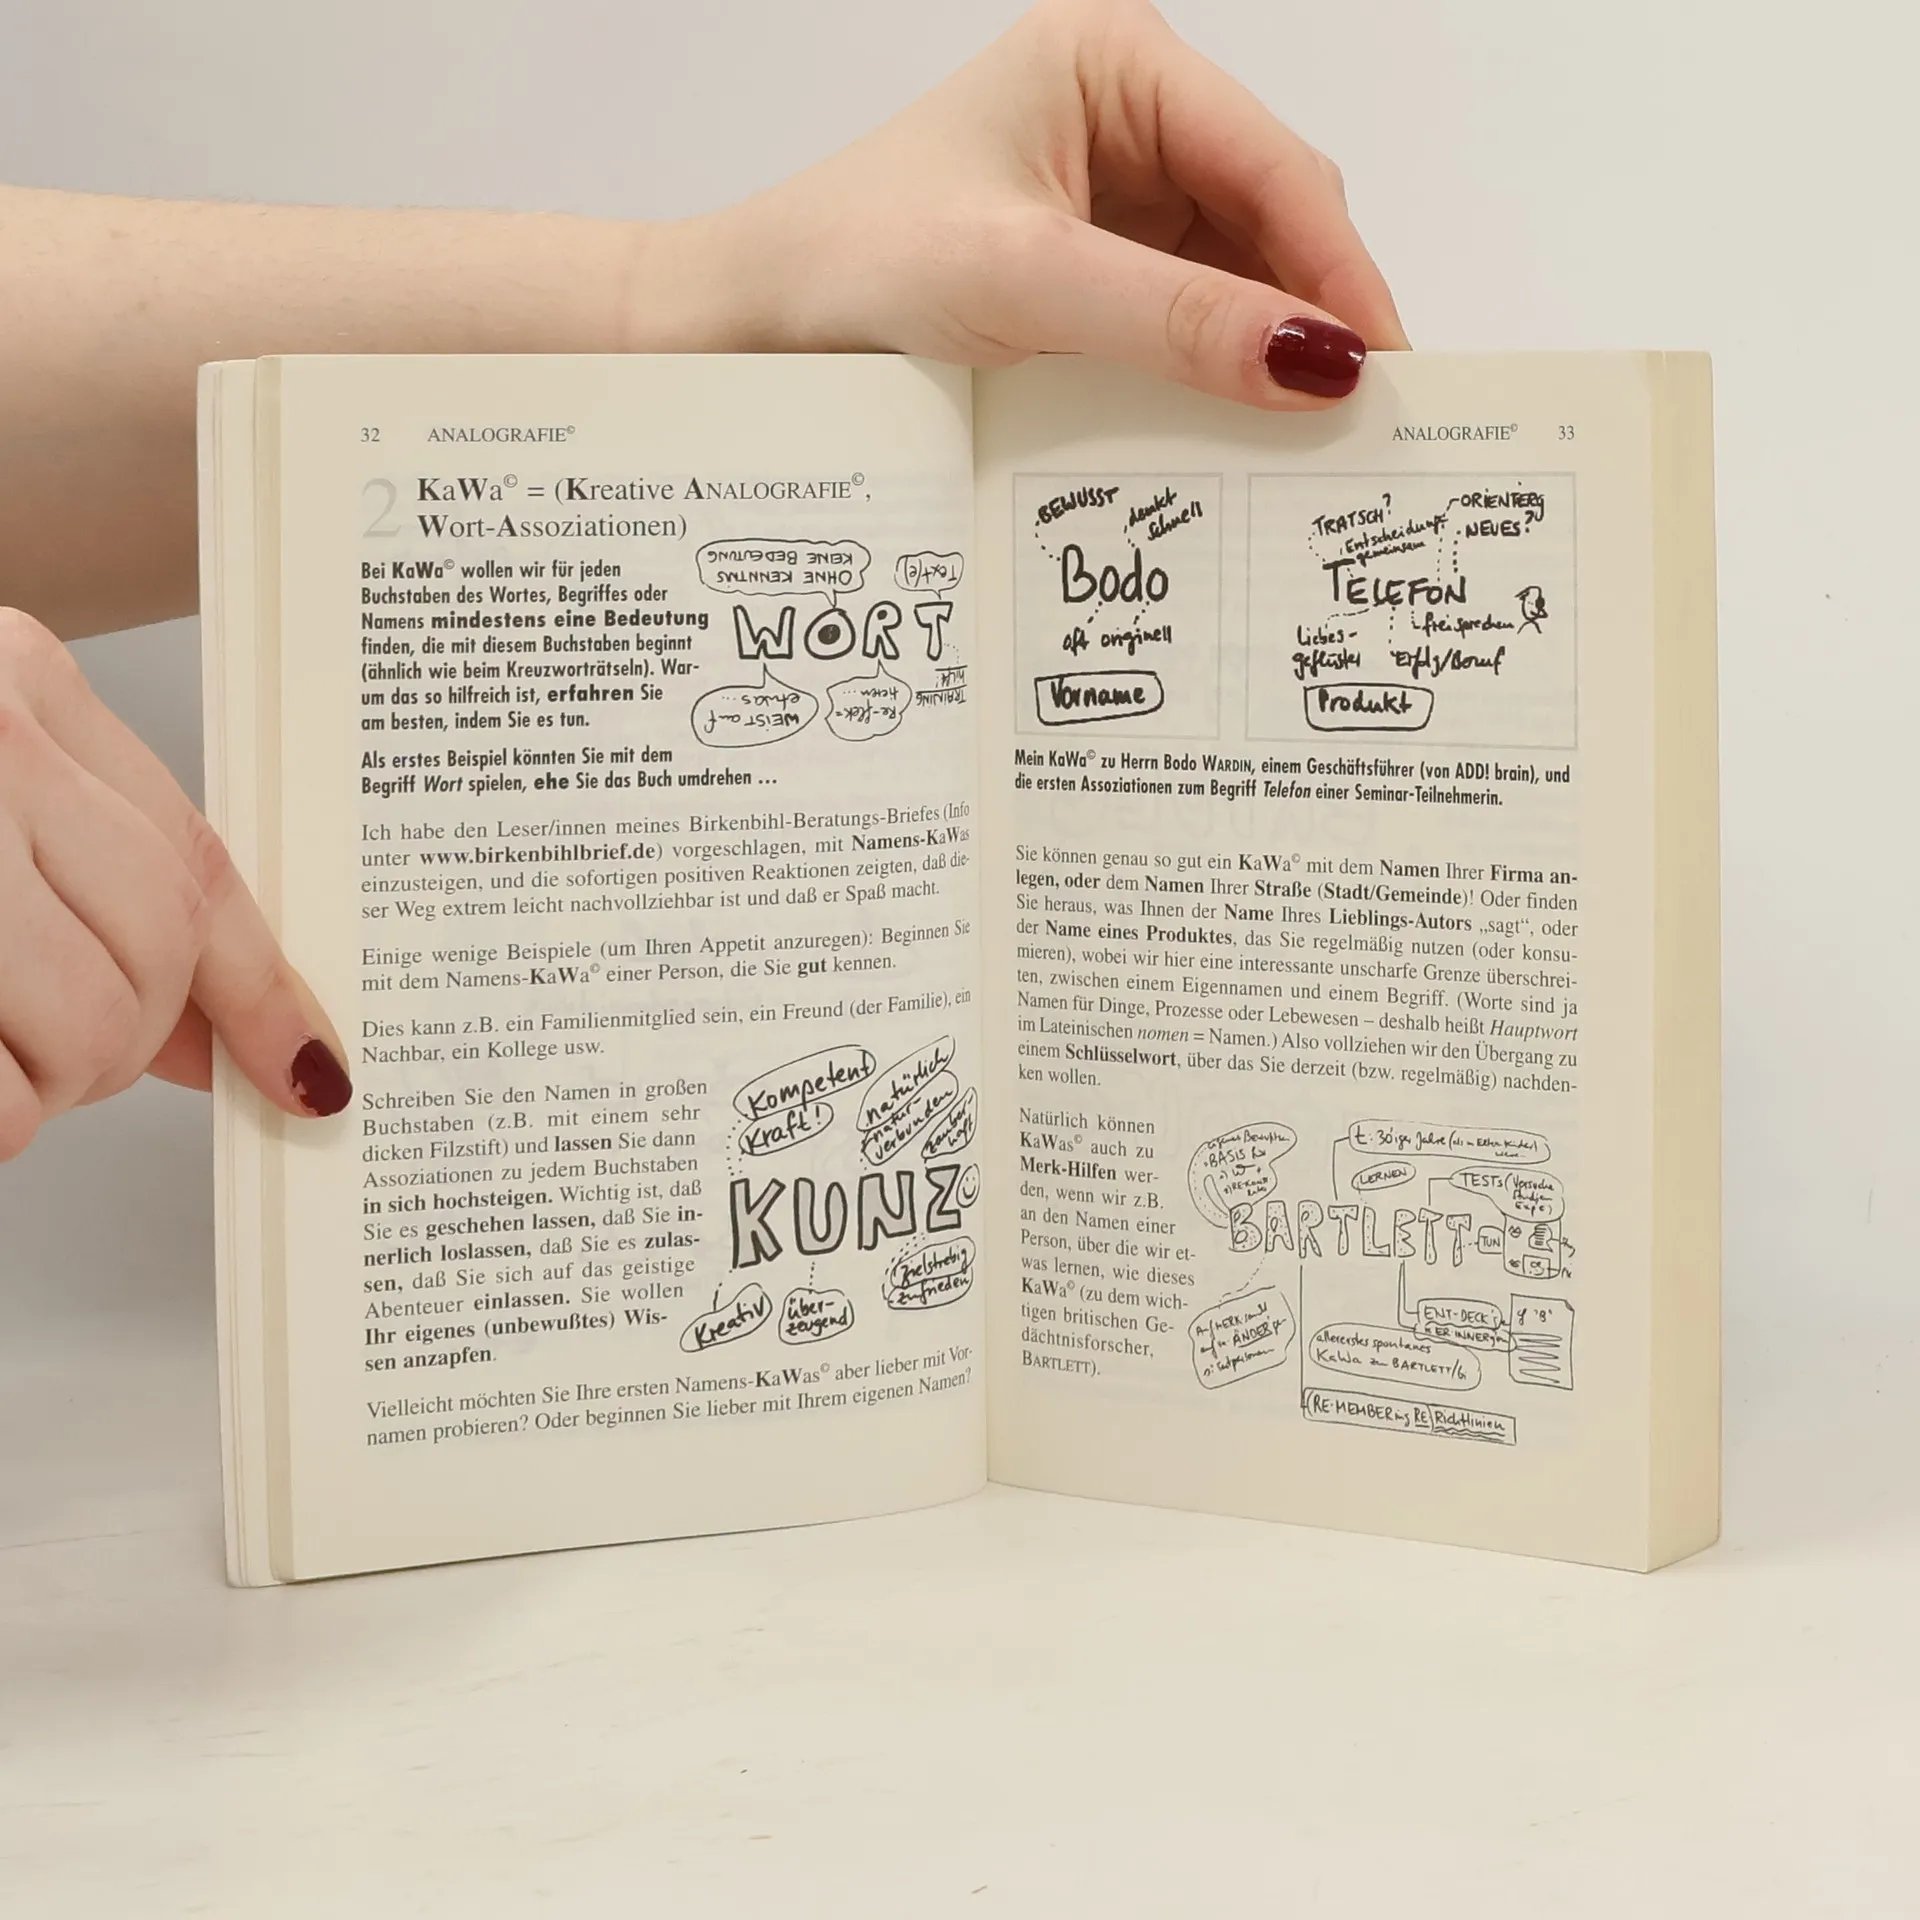 32 ANALOGRAFIE©
2 KaWa© = (Kreative ANALOGRAFIE©,
Wort-Assoziationen)
Bei KaWa© wollen wir für jeden
Buchstaben des Wortes, Begriffes oder
Namens mindestens eine Bedeutung
finden, die mit diesem Buchstaben beginnt
(ähnlich wie beim Kreuzworträtseln). War-
um das so hilfreich ist, erfahren Sie
am besten, indem Sie es tun.
OHNE KENNTNIS
KEINE BEDEUTUNG
Text(e)
WORT
WEIST auf
etwas...
Re-flek=
tieren...
TRAINING
hilft!
Als erstes Beispiel könnten Sie mit dem
Begriff Wort spielen, ehe Sie das Buch umdrehen ...
Ich habe den Leser/innen meines Birkenbihl-Beratungs-Briefes (Info
unter www.birkenbihlbrief.de) vorgeschlagen, mit Namens-KaWas
einzusteigen, und die sofortigen positiven Reaktionen zeigten, daß die-
ser Weg extrem leicht nachvollziehbar ist und daß er Spaß macht.
Einige wenige Beispiele (um Ihren Appetit anzuregen): Beginnen Sie
mit dem Namens-KaWa© einer Person, die Sie gut kennen.
Dies kann z.B. ein Familienmitglied sein, ein Freund (der Familie), ein
Nachbar, ein Kollege usw.
Schreiben Sie den Namen in großen
Buchstaben (z.B. mit einem sehr
dicken Filzstift) und lassen Sie dann
Assoziationen zu jedem Buchstaben
in sich hochsteigen. Wichtig ist, daß
Sie es geschehen lassen, daß Sie in-
nerlich loslassen, daß Sie es zulas-
sen, daß Sie sich auf das geistige
Abenteuer einlassen. Sie wollen
Ihr eigenes (unbewußtes) Wis-
sen anzapfen.
Kompetent
Kraft!
natürlich
natur-
verbunden
zauber-
haft
KUNZ
Kreativ
über-
zeugend
zielstrebig
zufrieden
Vielleicht möchten Sie Ihre ersten Namens-KaWas© aber lieber mit Vor-
namen probieren? Oder beginnen Sie lieber mit Ihrem eigenen Namen?
ANALOGRAFIE© 33
BEWUSST
denkt
schnell
Bodo
oft originell
Vorname
TRATSCH?
Entscheidung
gemeinsam
ORIENTIERG
NEUES?
TELEFON
Liebes-
geflüster
freisprechen
Erfolg/Beruf
Produkt
Mein KaWa© zu Herrn Bodo WARDIN, einem Geschäftsführer (von ADD! brain), und
die ersten Assoziationen zum Begriff Telefon einer Seminar-Teilnehmerin.
Sie können genau so gut ein KaWa© mit dem Namen Ihrer Firma an-
legen, oder dem Namen Ihrer Straße (Stadt/Gemeinde)! Oder finden
Sie heraus, was Ihnen der Name Ihres Lieblings-Autors „sagt“, oder
der Name eines Produktes, das Sie regelmäßig nutzen (oder konsu-
mieren), wobei wir hier eine interessante unscharfe Grenze überschrei-
ten, zwischen einem Eigennamen und einem Begriff. (Worte sind ja
Namen für Dinge, Prozesse oder Lebewesen – deshalb heißt Hauptwort
im Lateinischen nomen = Namen.) Also vollziehen wir den Übergang zu
einem Schlüsselwort, über das Sie derzeit (bzw. regelmäßig) nachden-
ken wollen.
Natürlich können
KaWas© auch zu
Merk-Hilfen wer-
den, wenn wir z.B.
an den Namen einer
Person, über die wir et-
was lernen, wie dieses
KaWa© (zu dem wich-
tigen britischen Ge-
dächtnisforscher,
BARTLETT).
BASIS
30iger Jahre
LERNEN
TESTs (Versuche
Studien
BARTLETT
TUN
ÄNDER
ENT-DECK
ER-INNER
allererstes spontanes
KaWa zu BARTLETT
RE-MEMBERing RE Richtlinien